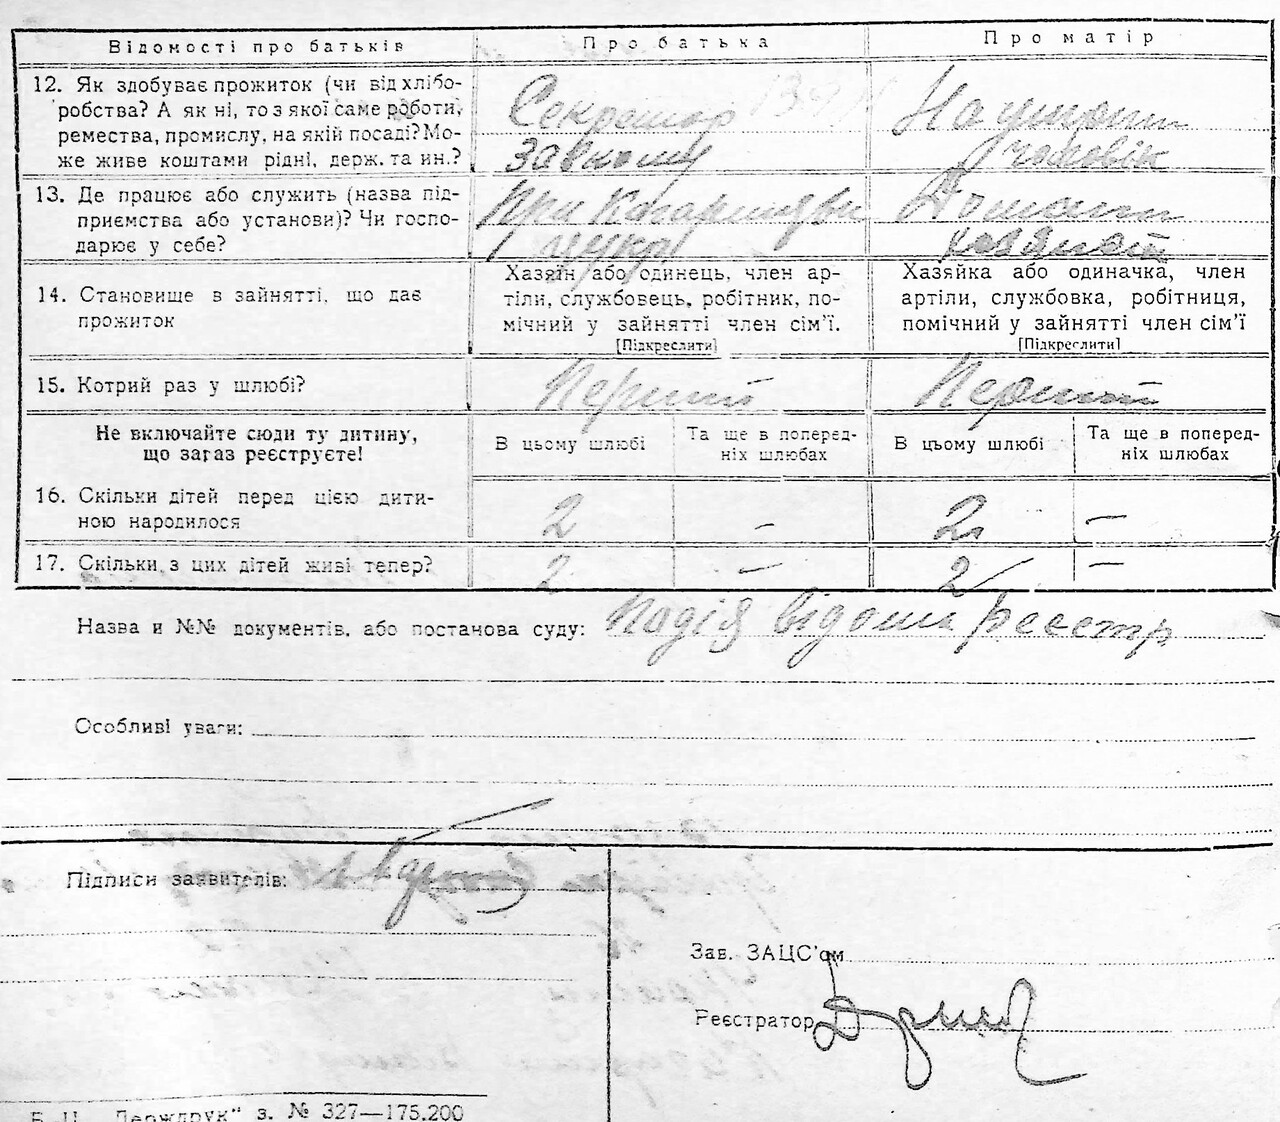 Відомості про батьків
Про батька
Про матір
12. Як здобуває прожиток (чи від хлібо-
робства? А як ні, то з якої саме роботи,
ремества, промислу, на якій посаді? Мо-
же живе коштами рідні, держ. та ин.?
Секретар
завкому
На утрим
чоловік
13. Де працює або служить (назва під-
приємства або установи)? Чи госпо-
дарює у себе?
При
цукр
Домашн
хазяйст
14. Становище в зайнятті, що дає
прожиток
Хазяїн або одинець, член ар-
тіли, службовець, робітник, по-
мічний у зайнятті член сім'ї.
[Підкреслити]
Хазяйка або одиначка, член
артіли, службовка, робітниця,
помічний у зайнятті член сім'ї
[Підкреслити]
15. Котрий раз у шлюбі?
Перший
Перший
Не включайте сюди ту дитину,
що зараз реєструєте!
В цьому шлюбі
Та ще в поперед-
ніх шлюбах
В цьому шлюбі
Та ще в поперед-
ніх шлюбах
16. Скільки дітей перед цією дити-
ною народилося
2
–
2
–
17. Скільки з цих дітей живі тепер?
2
–
2
–
Назва и №№ документів, або постанова суду: Подія відома реєстр
Особливі уваги:
Підписи заявителів:
Зав. ЗАЦС'ом
Реєстратор
Б. Ц. „Держдрук" з. № 327—175.200